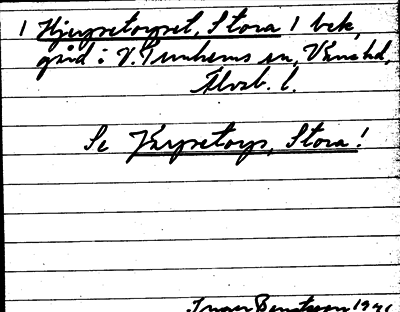 1 Hjerpetorpet, Stora 1 bek,
gård i V. Tunhems sn, Väne hd,
Älvsb. l.
Se Jerpetorp, Stora!
Inger Bengtsson 19